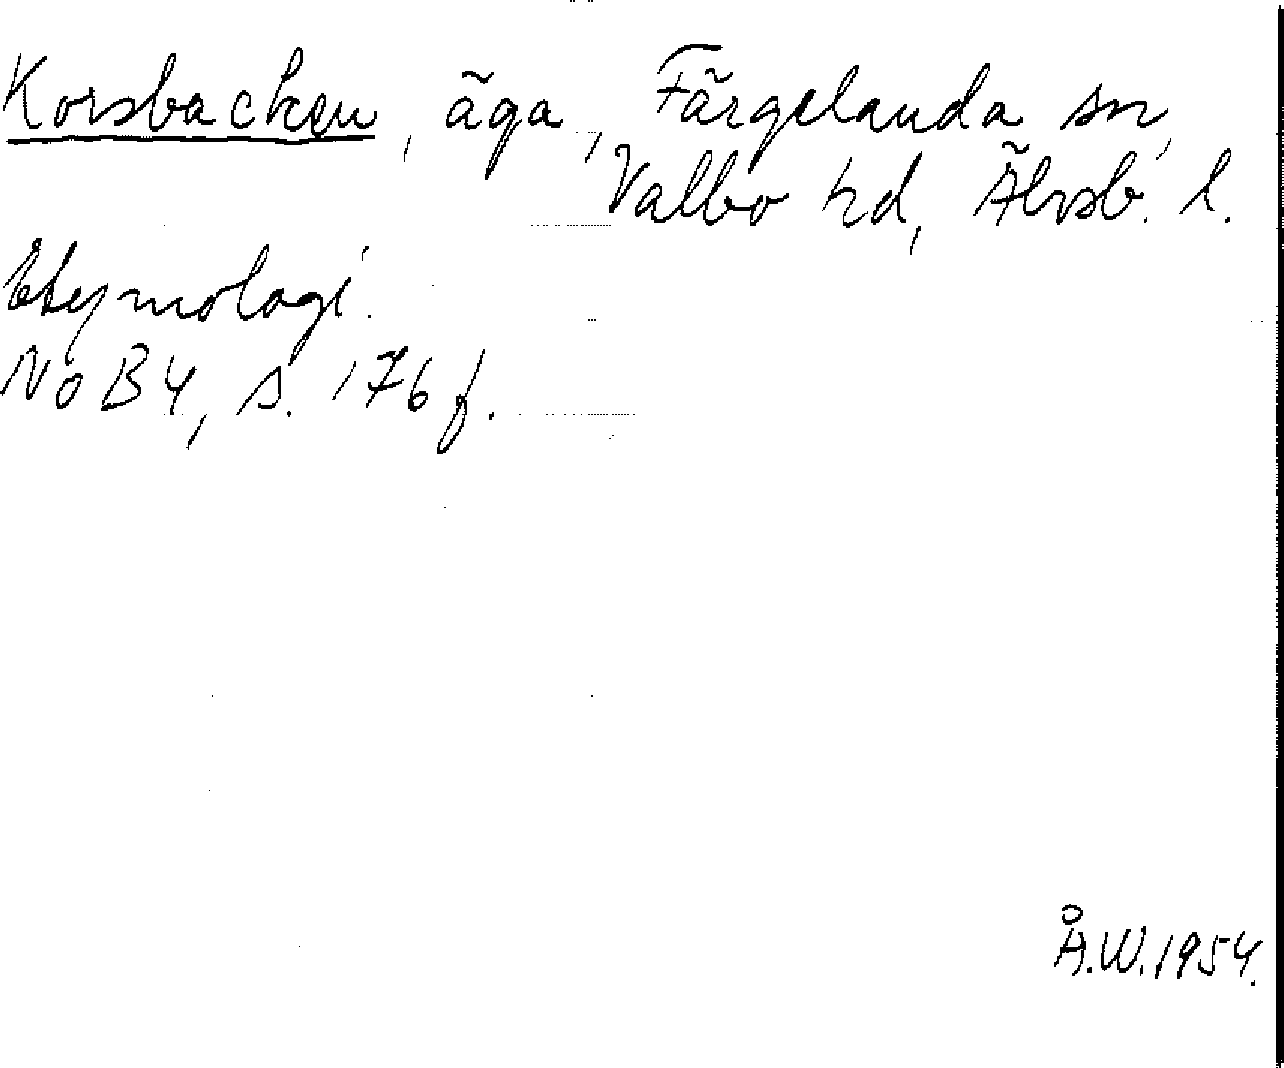 Korsbacken, äga, Färgelanda sn,
Valbo hd, Älvsb. l.
Etymologi.
NoB 4, s. 176 f.
Å.W. 1954.